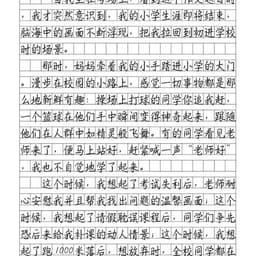 ，我才突然意识到，我的小学生涯即将结束，
脑海中的画面不断浮现，把我拉回到初进学校
时的场景。
那时，妈妈牵着我的小手踏进小学的大门
。漫步在校园的小路上，感觉一切事物都是那
么地新鲜有趣：操场上打球的同学你追我赶，
一个篮球在他们手中瞬间变得神奇起来，跟随
他们在人群中如精灵般飞舞。有的同学看见老
师来了，便马上站好，赶紧喊一声“老师好”
，我也不自觉地学了起来。
这个时候，我想起了考试失利后，老师耐
心安慰我并且帮我找出问题的温馨画面；这个
时候，我想起了请假耽误课程后，同学们争先
恐后来给我补课的动人情景；这个时候，我想
起了跑1000米落后，想放弃时，全校同学都在